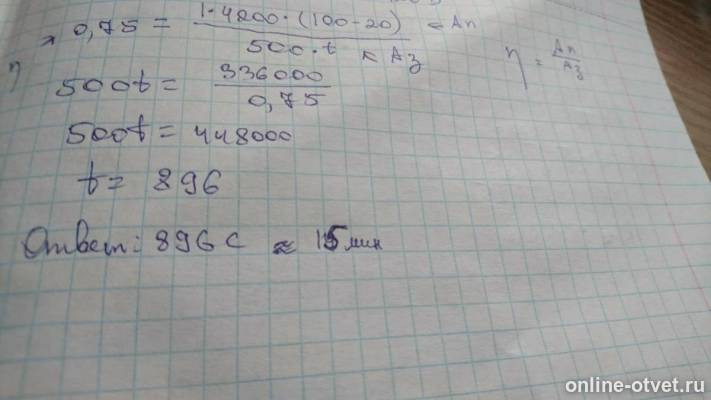 η → 0,75 = 1·4200·(100-20) / 500·t ← Aп
← Aз
η = Aп / Aз
500t = 336000 / 0,75
500t = 448000
t = 896
Ответ: 896 с ≈ 15 мин
online-otvet.ru